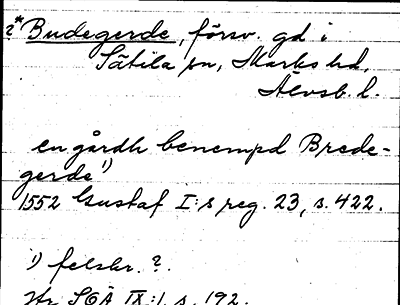 ?* Budegerde, försv. gd i
Sätila sn, Marks hd,
Älvsb. l.
en gårdh benempd Brede-
gerde 1)
1552 Gustaf I:s reg. 23, s. 422.
1) felskr. ?.
Str SOÄ IX:1 s. 192.